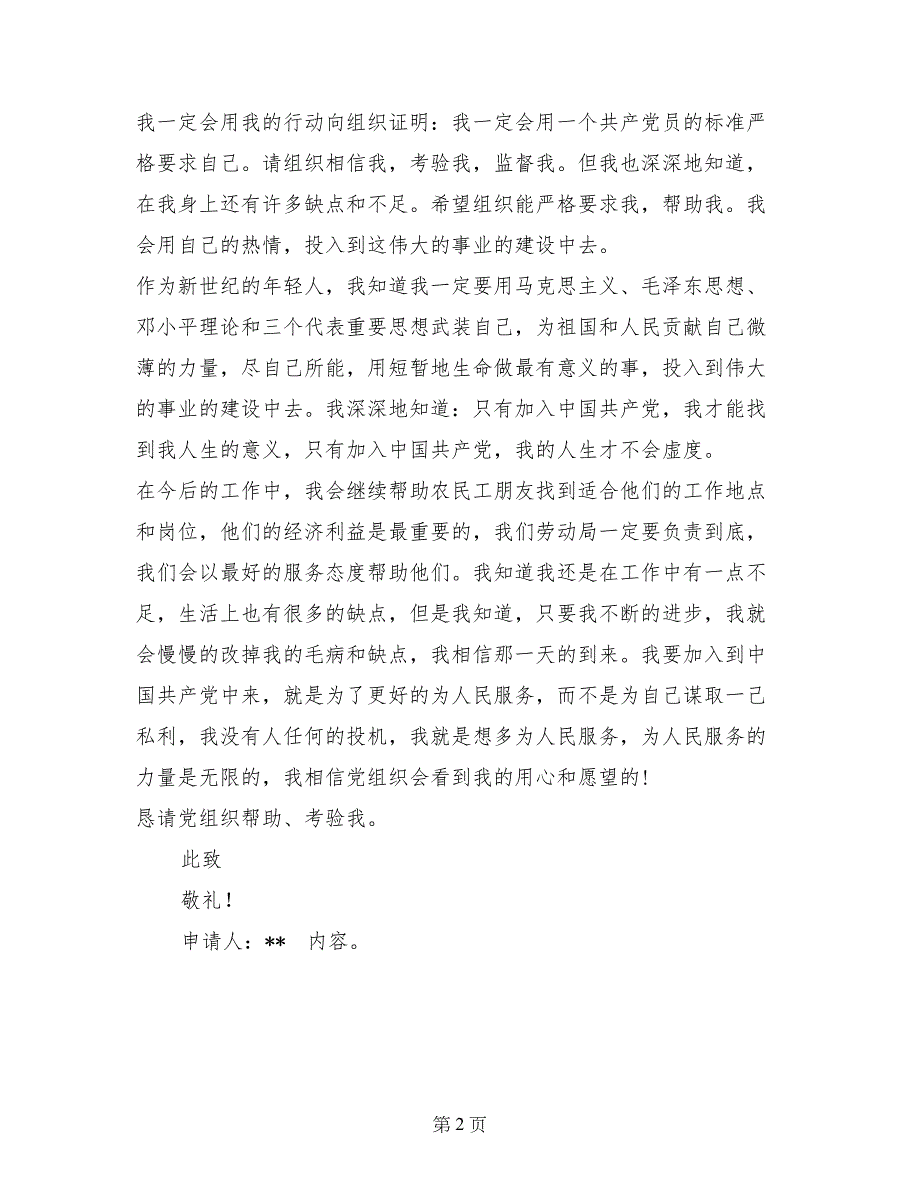 我一定会用我的行动向组织证明：我一定会用一个共产党员的标准严
格要求自己。请组织相信我，考验我，监督我。但我也深深地知道，
在我身上还有许多缺点和不足。希望组织能严格要求我，帮助我。我
会用自己的热情，投入到这伟大的事业的建设中去。
作为新世纪的年轻人，我知道我一定要用马克思主义、毛泽东思想、
邓小平理论和三个代表重要思想武装自己，为祖国和人民贡献自己微
薄的力量，尽自己所能，用短暂地生命做最有意义的事，投入到伟大
的事业的建设中去。我深深地知道：只有加入中国共产党，我才能找
到我人生的意义，只有加入中国共产党，我的人生才不会虚度。
在今后的工作中，我会继续帮助农民工朋友找到适合他们的工作地点
和岗位，他们的经济利益是最重要的，我们劳动局一定要负责到底，
我们会以最好的服务态度帮助他们。我知道我还是在工作中有一点不
足，生活上也有很多的缺点，但是我知道，只要我不断的进步，我就
会慢慢的改掉我的毛病和缺点，我相信那一天的到来。我要加入到中
国共产党中来，就是为了更好的为人民服务，而不是为自己谋取一己
私利，我没有人任何的投机，我就是想多为人民服务，为人民服务的
力量是无限的，我相信党组织会看到我的用心和愿望的!
恳请党组织帮助、考验我。
此致
敬礼！
申请人：** 内容。
第 2 页